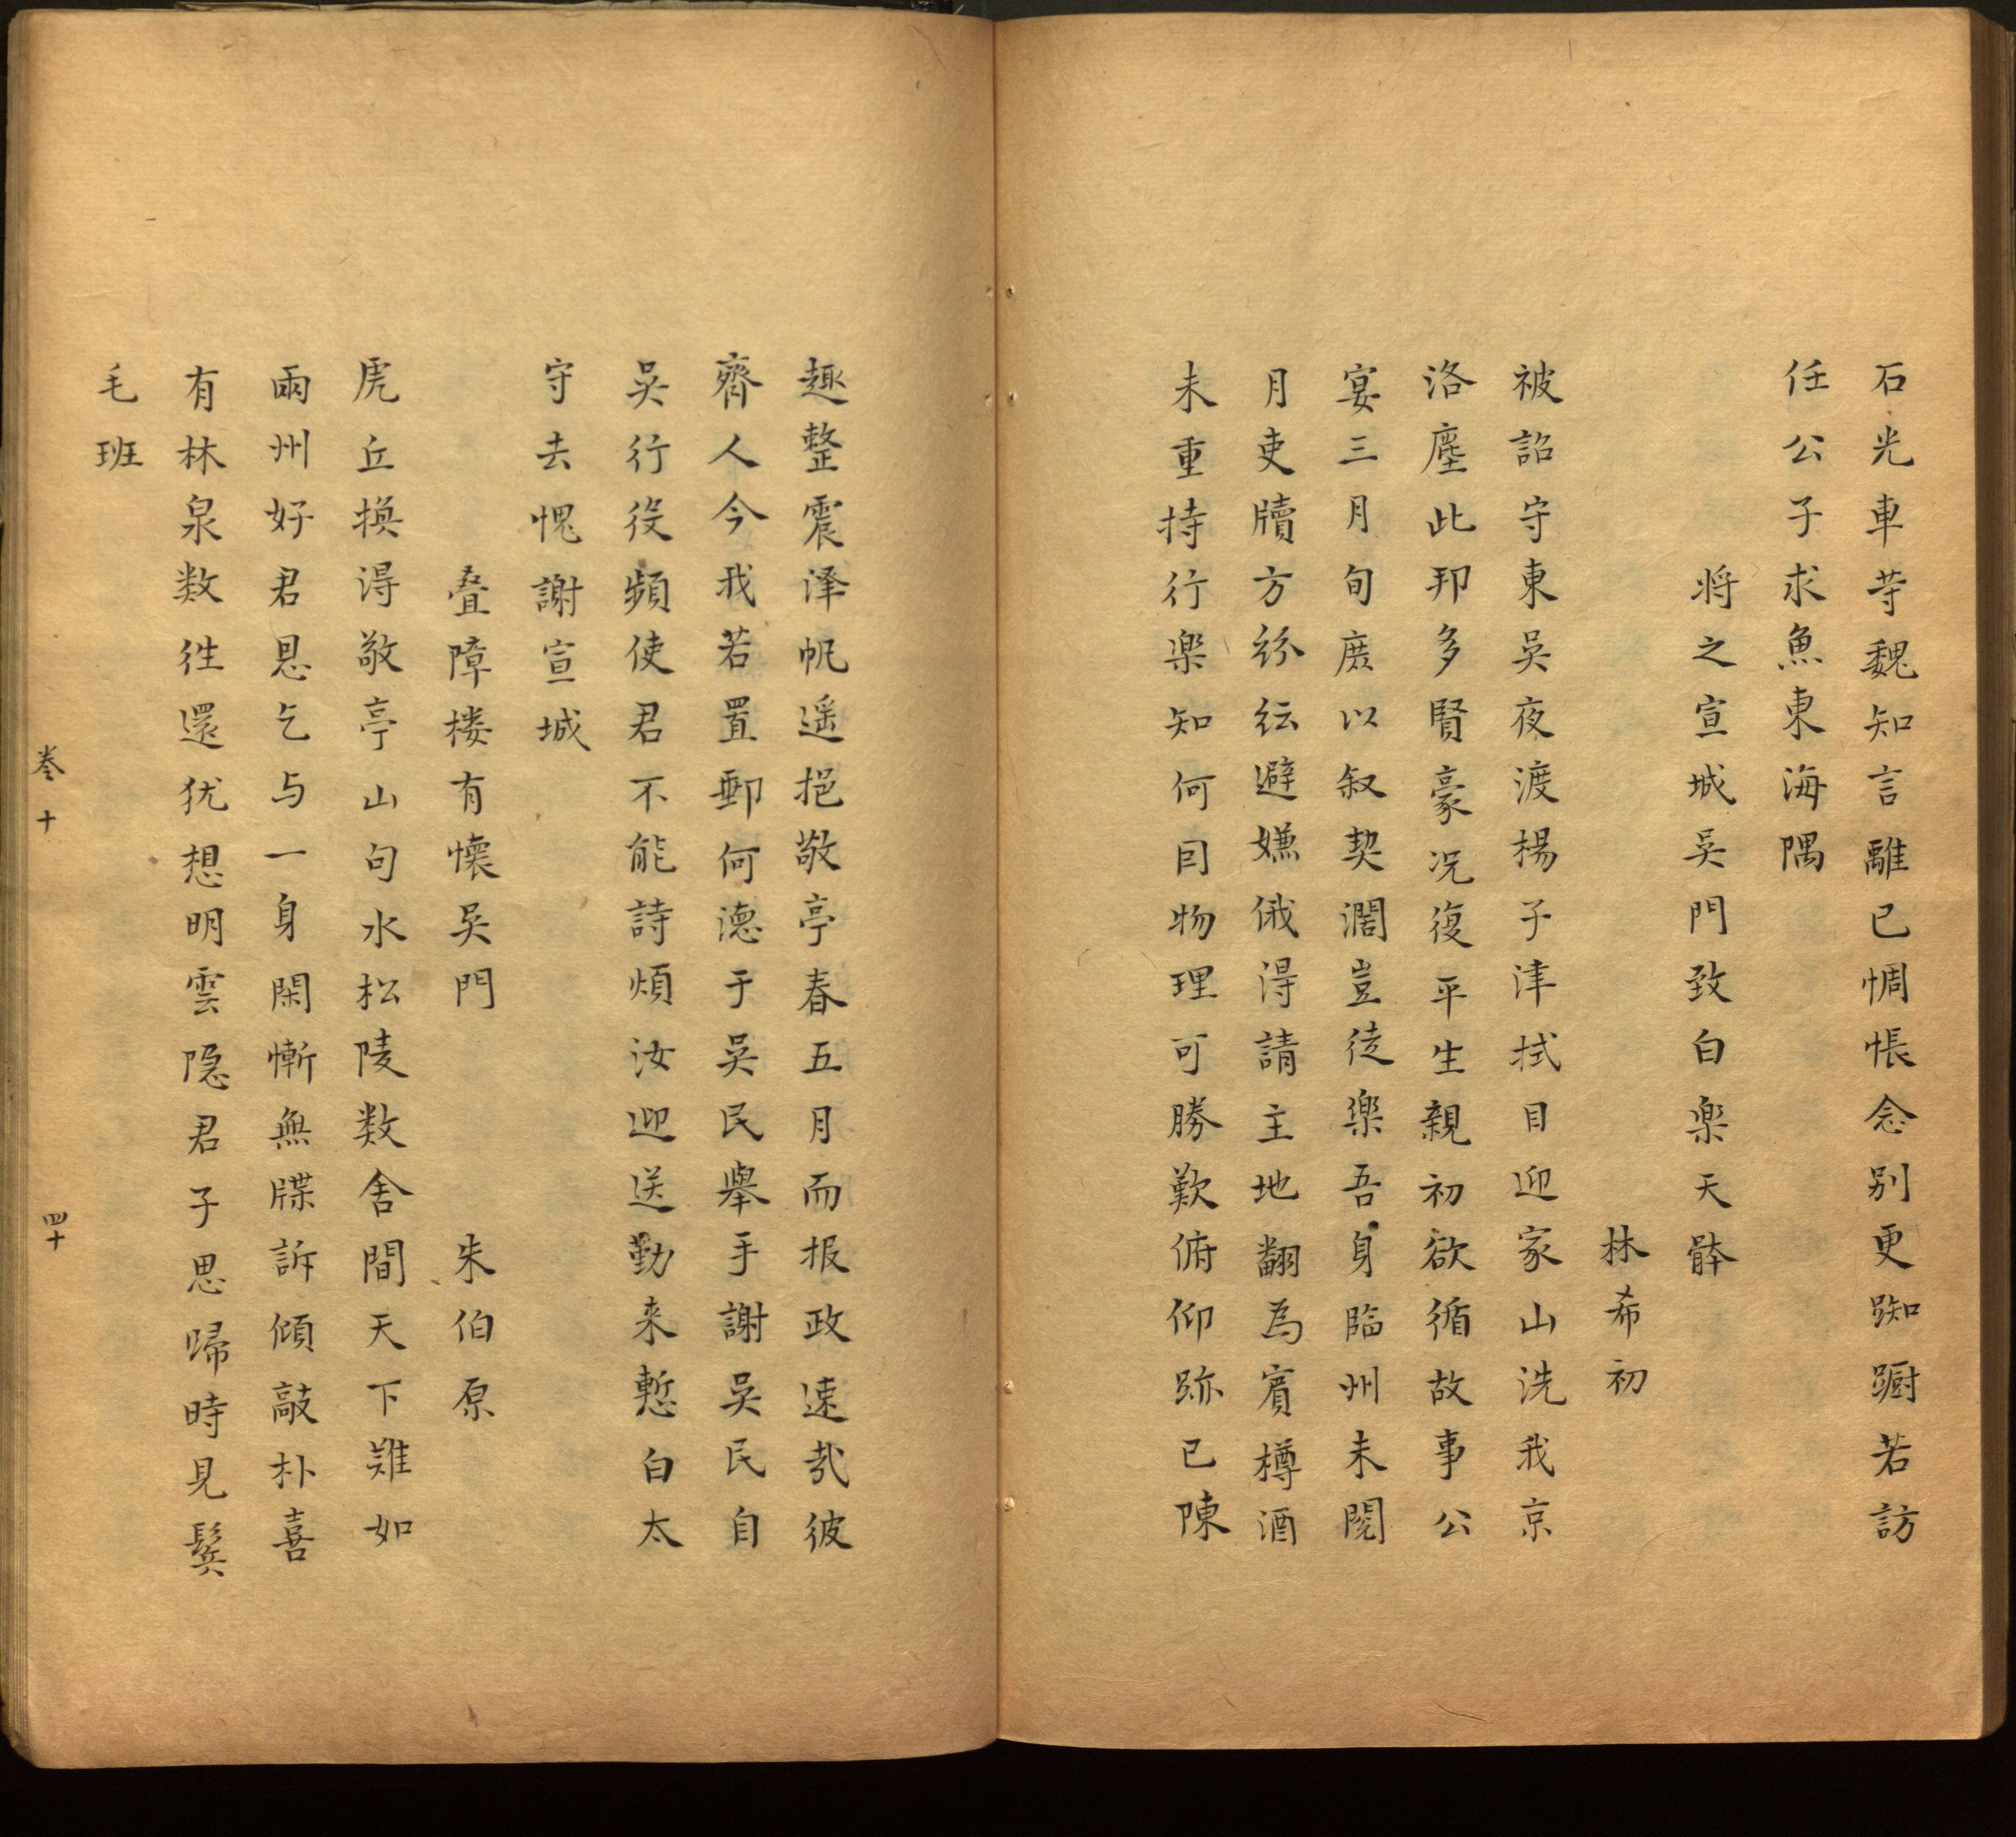 石光車䓁魏知言離已惆悵念别更踟蹰若訪
任公子求魚東海隅
将之宣城吳門致白楽天骵
林希初
被詔守東吳夜渡楊子津拭目迎家山洗我京
洛塵此邦多賢豪况復平生親初欲循故事公
宴三月旬庶以叙契濶豈徒楽吾身臨州未閱
月吏牘方紛紜避嫌俄得請主地翻為賓樽酒
未重持行楽知何因物理可勝歎俯仰跡已陳
趣整震泽帆遥挹敬亭春五月而报政速㢤彼
齊人今我若置郵何德于吳民舉手謝吳民自
吳行役頻使君不能詩煩汝迎送勤来慙白太
守去愧謝宣城
叠障楼有懷吳門
朱伯原
虎丘換得敬亭山句水松陵数舍間天下雖如
兩州好君恩乞与一身閑慚無牒訴傾敲朴喜
有林泉数徃還犹想明雲隐君子思歸時見鬂
毛班
卷十
四十